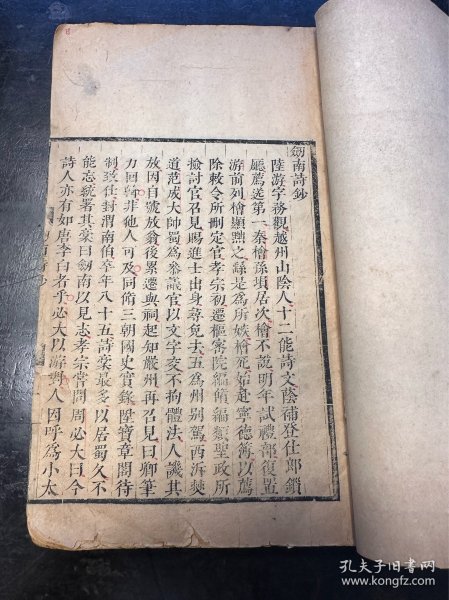 劒南詩鈔
陸游字務觀越州山陰人十二能詩文蔭補登仕郎鎖
廳薦送第一秦檜孫塤居次檜不說明年試禮部復置
游前列檜顯黜之繇是爲所嫉檜死始赴寧德簿以薦
除敕令所刪定官孝宗初遷樞密院編修編類聖政所
檢討官召見賜進士出身尋免去五爲州別駕西泝僰
道范成大帥蜀爲參議官以文字交不拘禮法人譏其
放因自號放翁後累遷與祠起知嚴州再召見曰卿筆
力回斡非他人可及同修三朝國史實錄陞寶章閣待
制致仕封渭南伯卒年八十五詩槀最多以居蜀久不
能忘統署其槀曰劒南以見志孝宗嘗問周必大曰今
詩人亦有如唐李白者乎必大以游對人因呼爲小太
孔夫子旧书网
www.kongfz.com